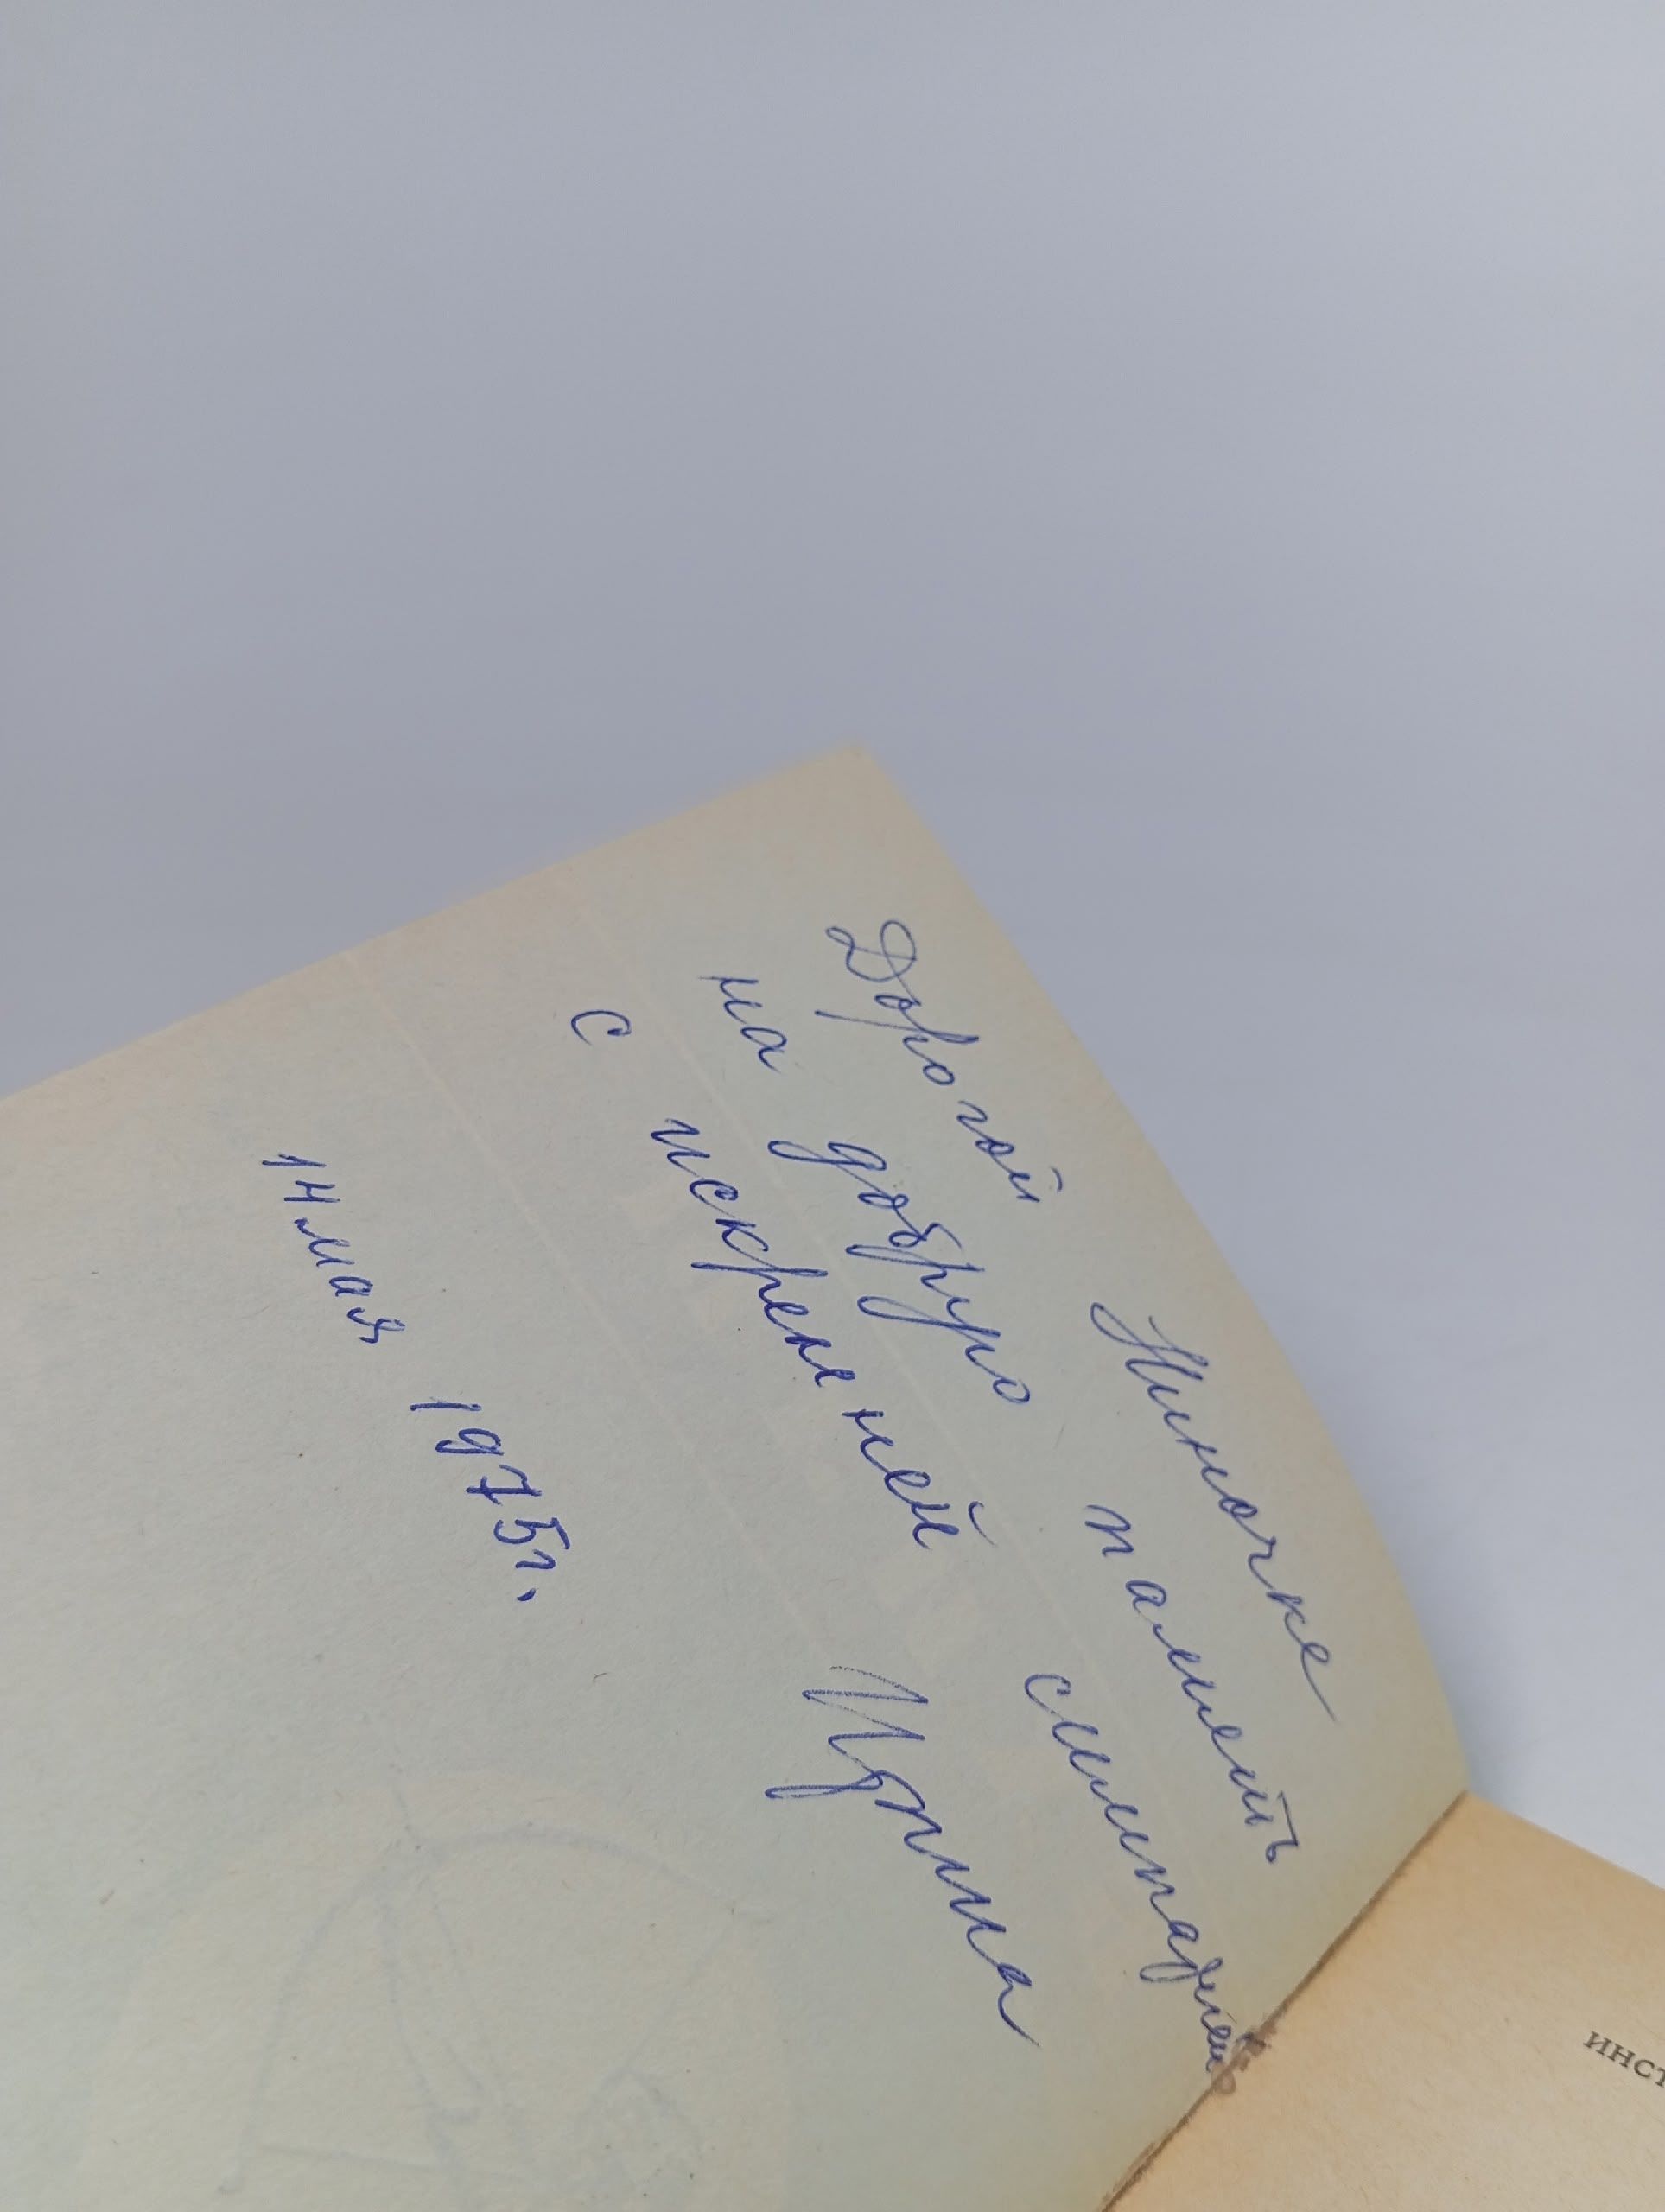 Дорогой Ниночке
на добрую память
с искренней симпатией
Ирина
14 мая 1975г.
инст